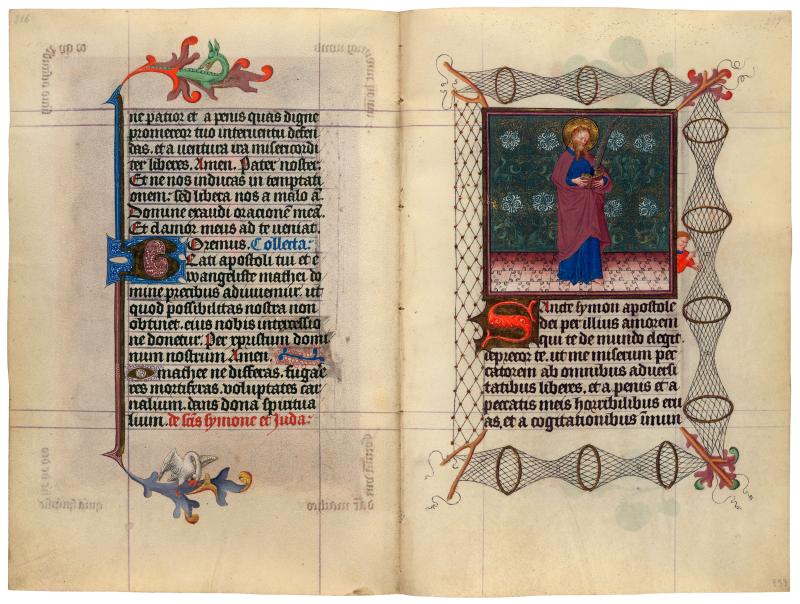 216
ne patior et a penis quas digne
promereor tuo interuentu defen
das. et a uentura ira misericordi
ter liberes. Amen. Pater noster.
Et ne nos inducas in temptati
onem: sed libera nos a malo ā
Domine exaudi oracionē meā.
Et clamor meus ad te ueniat.
Oremus. Collecta:
Beati apostoli tui et e
wangeliste mathei do
mine precibus adiuuemur. ut
quod possibilitas nostra non
obtinet. eius nobis intercessio
ne donetur. Per xpristum domi
num nostrum Amen.
O mathee ne differas. fuga
res mortiferas. uoluptates car
nalium. dans dona spiritua
lium. de scīs symone et Juda:
217
Sancte symon apostole
dei per illius amorem
qui te de mundo elegit.
deprecor te. ut me miserum pec
catorem ab omnibus aduersi
tatibus liberes. et a penis et a
peccatis meis horribilibus eru
as. et a cogitationibus